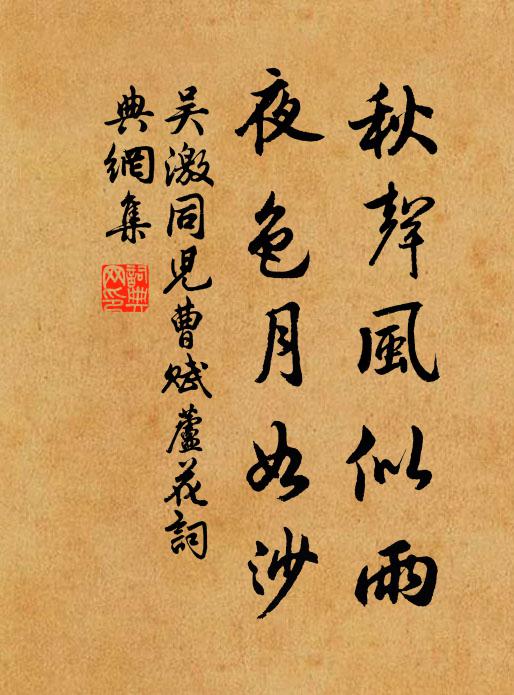 秋聲風似雨
夜色月如沙
吴激同兒曹賦蘆花詞
典網集
詞典網印